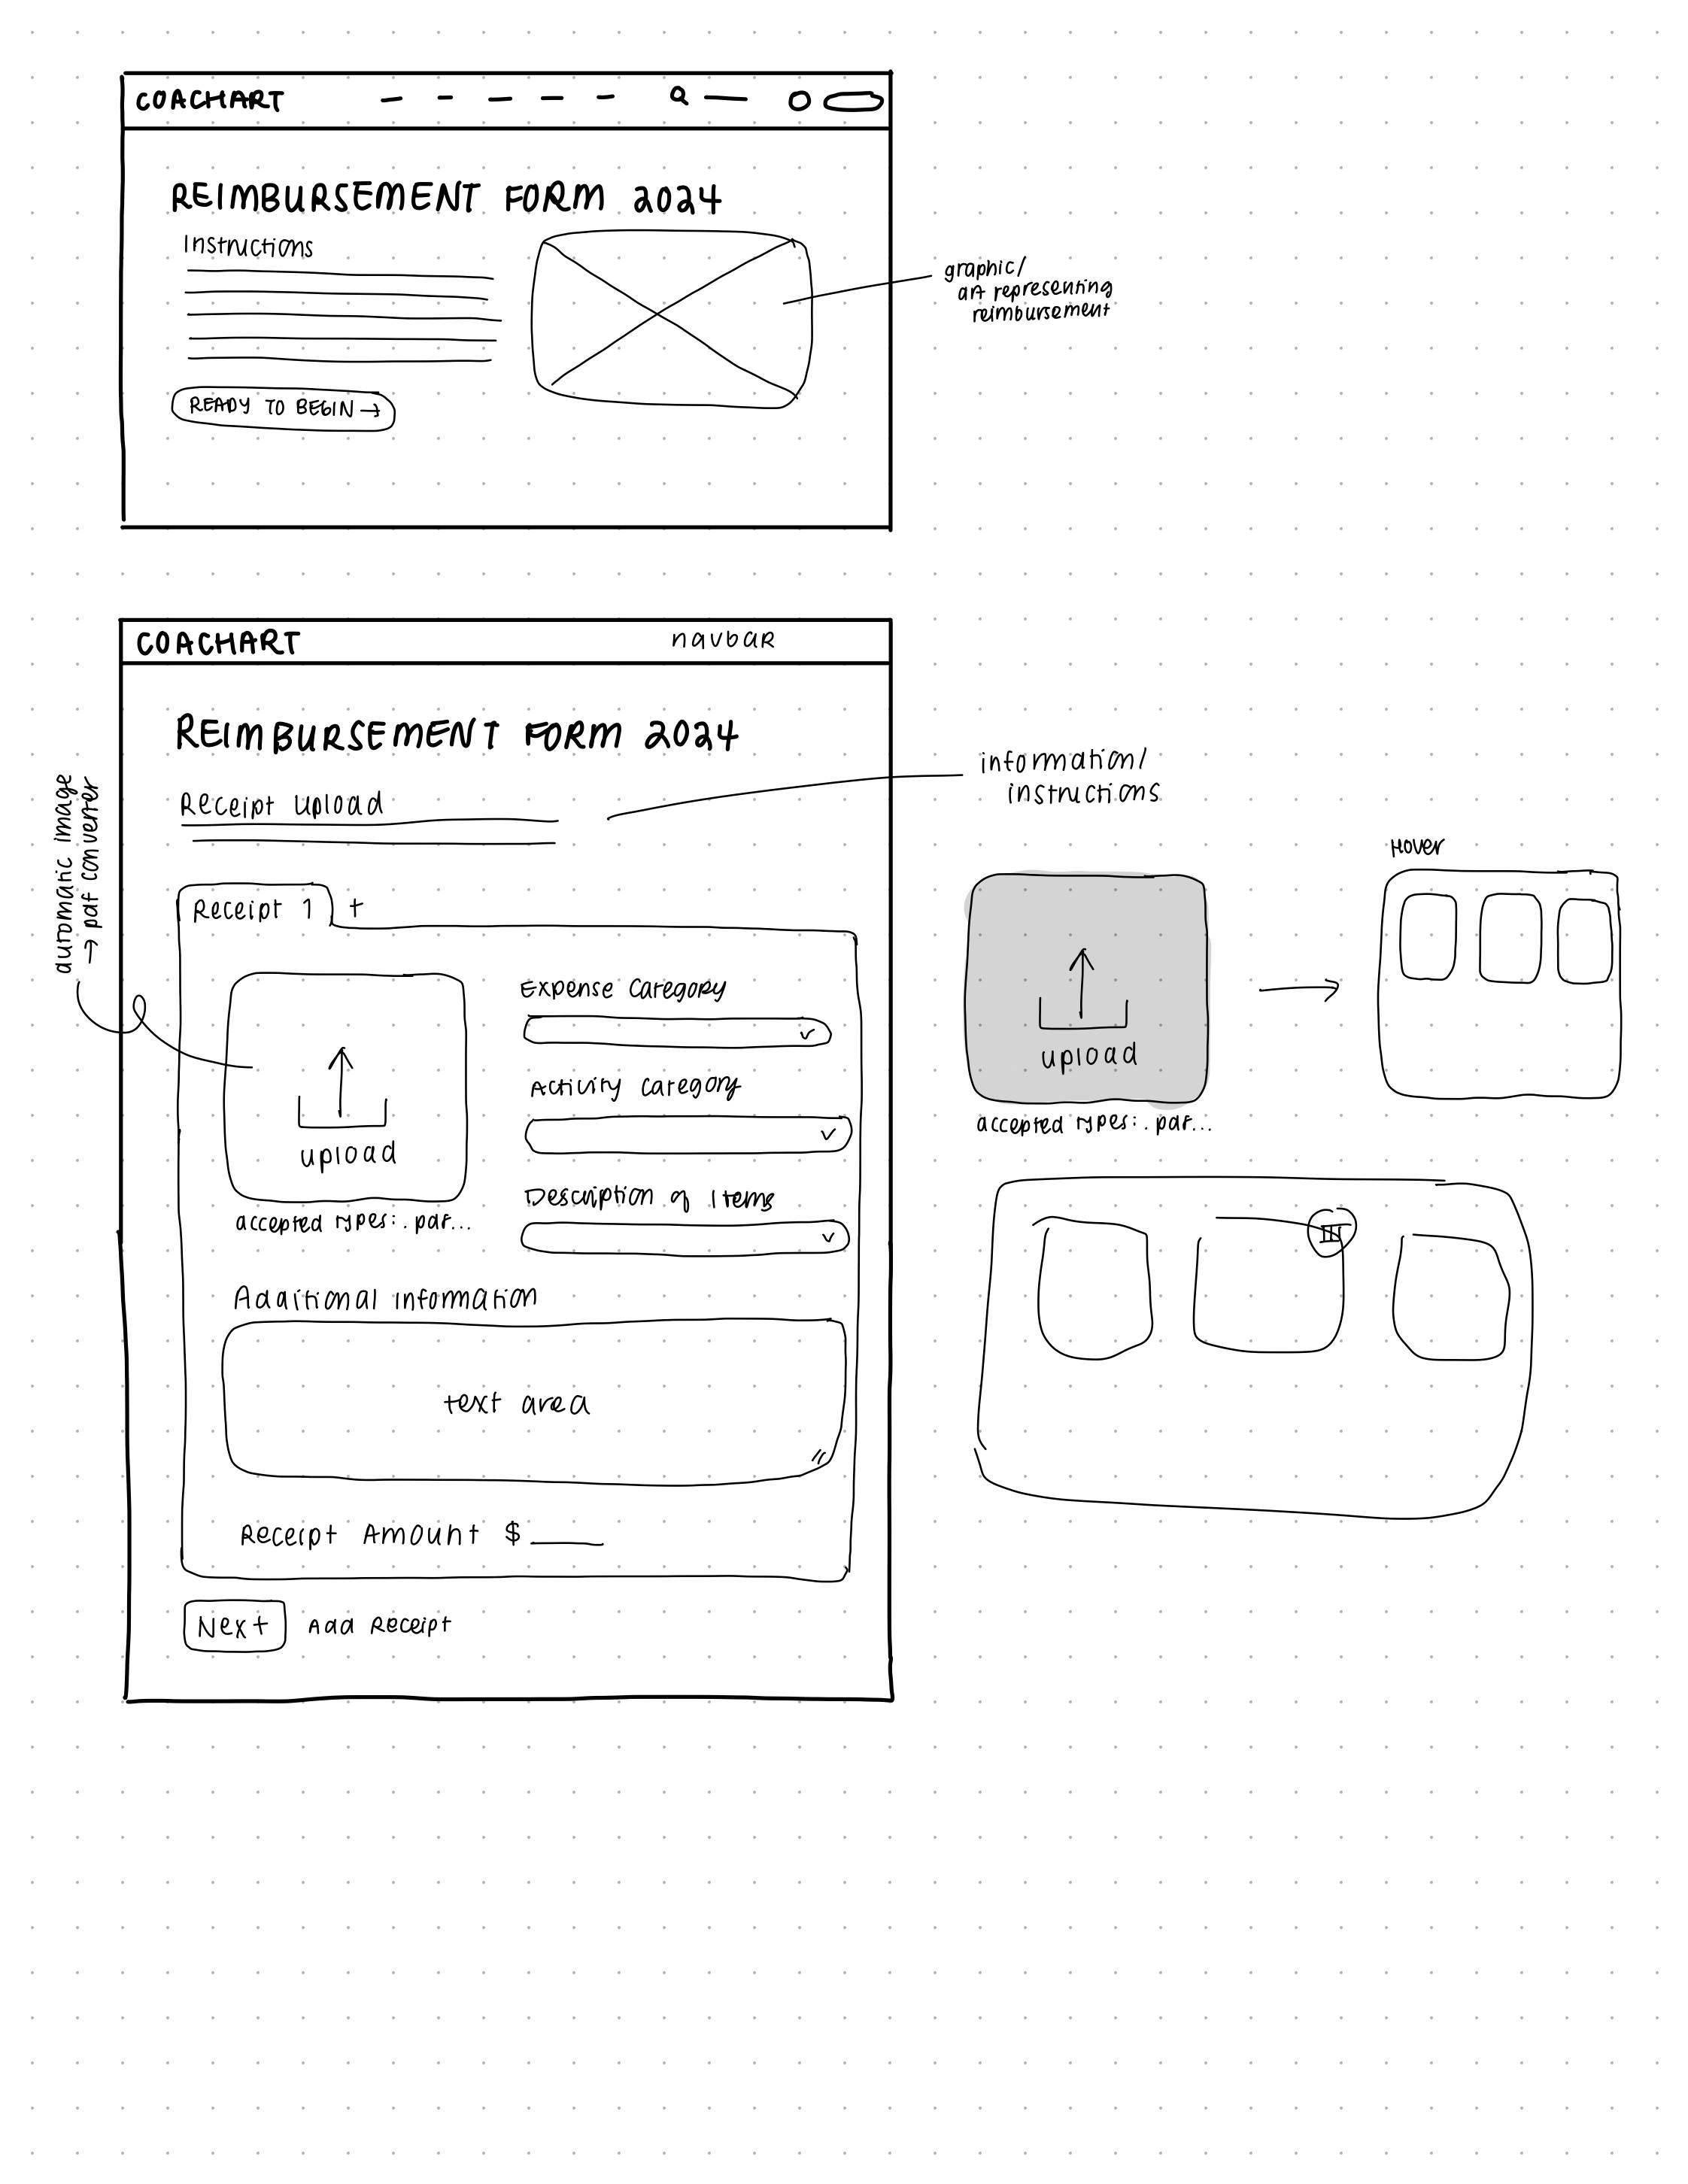 COACHART
REIMBURSEMENT FORM 2024
Instructions
READY TO BEGIN →
graphic/
art representing
reimbursement
COACHART
navbar
REIMBURSEMENT FORM 2024
Receipt upload
information/
instructions
automatic image
→ pdf converter
Receipt 1 +
upload
accepted types: .pdf...
Expense Category
Activity Category
Description of Items
Additional Information
text area
Receipt Amount $
Next
Add Receipt
upload
accepted types: .pdf...
Hover